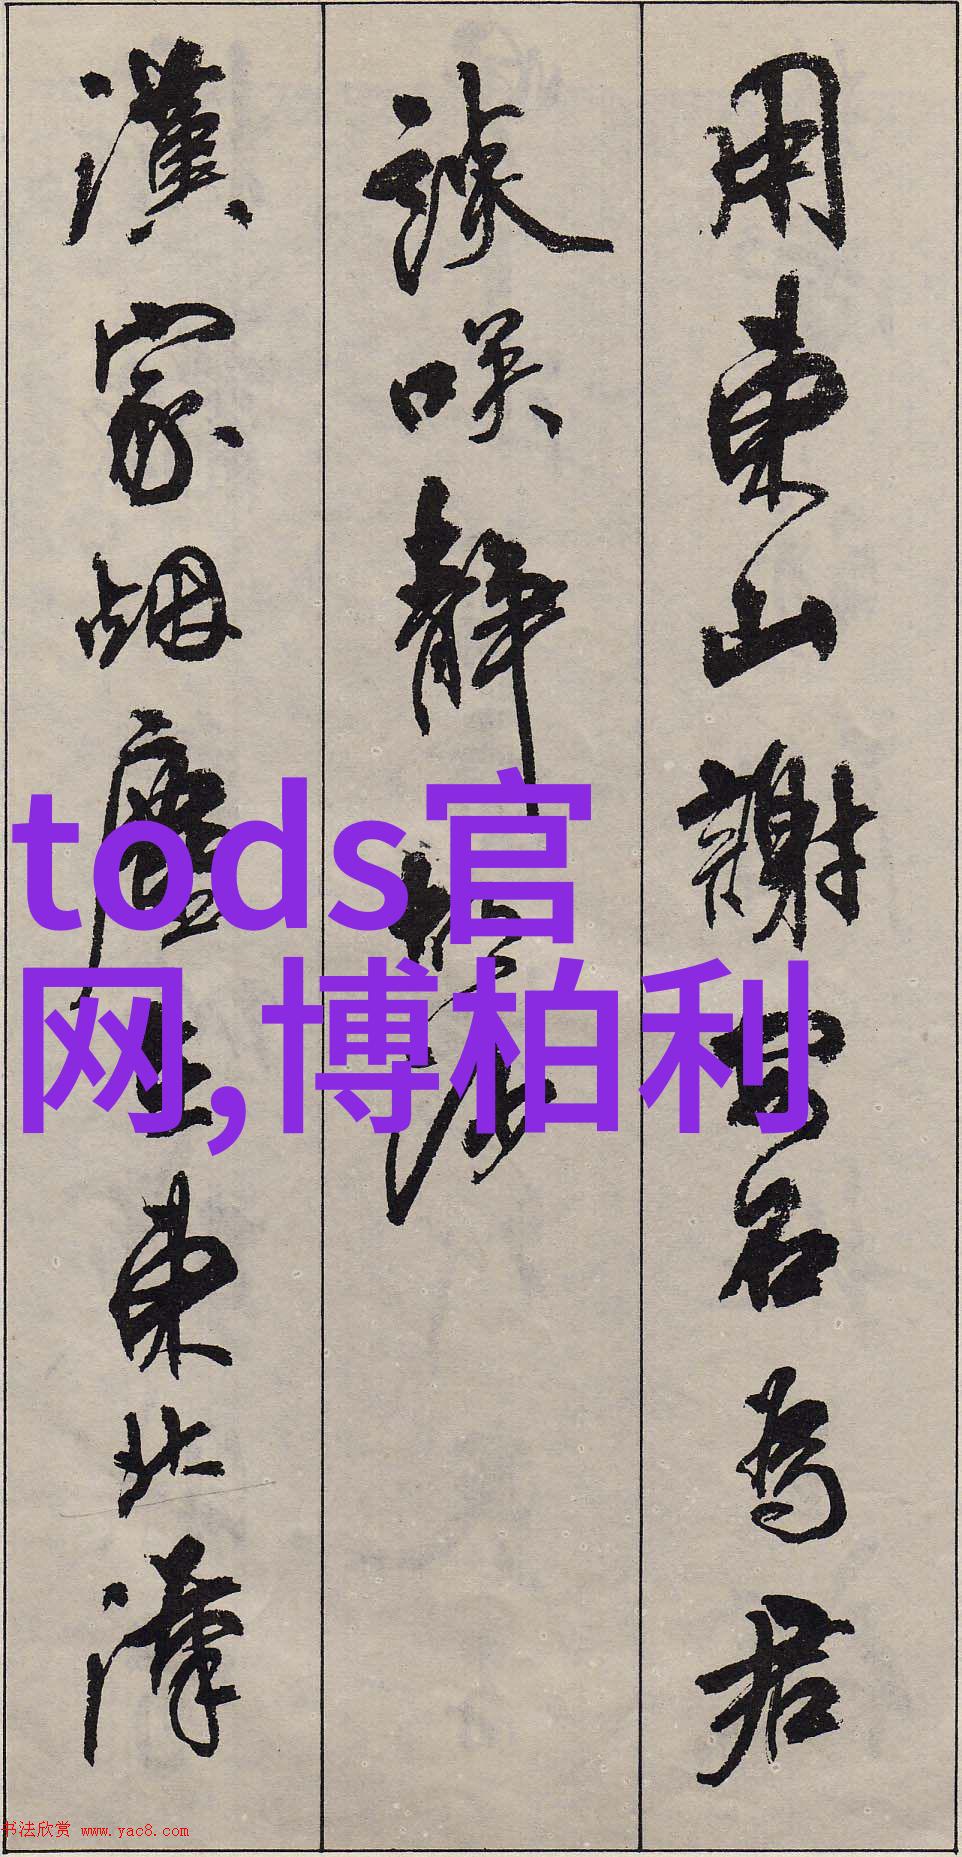 用東山謝安石為君
談咲靜胡沙
漢家烟塵在東北漢
tods官
网,博柏利
书法欣赏 www.yac8.com